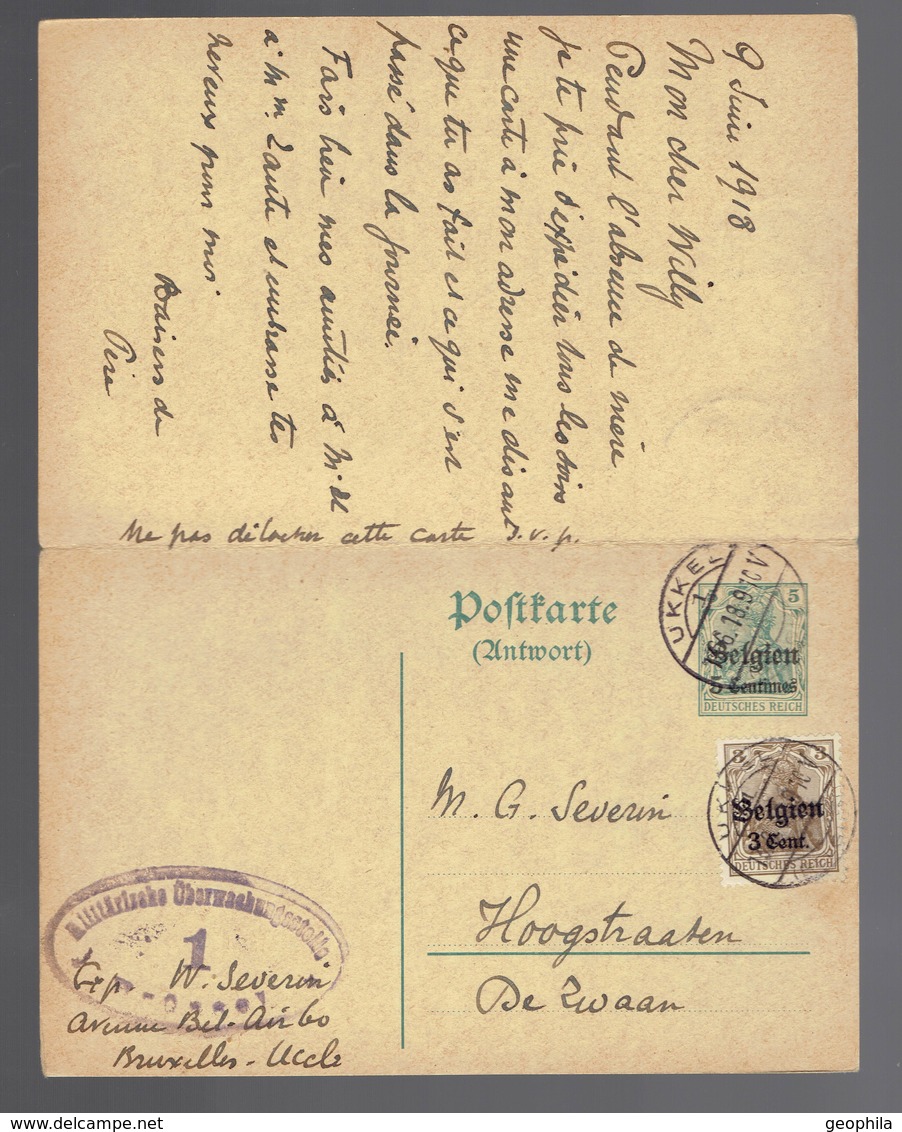 9 Juin 1918
Mon cher Willy
Pendant l'absence de mère
je te prie d'expédier tous les soirs
une carte à mon adresse me disant
ce que tu as fait et ce qui s'est
passé dans la journée.
Fais bien mes amitiés à Mr et
à Mme Zante et embrasse tes
neveux pour moi
Baisers de
Père
Ne pas détacher cette carte s.v.p.
Postkarte
(Antwort)
UKKEL
1
6.18.9-10V
5
Belgien
5 Centimes
DEUTSCHES REICH
3 3
Belgien
3 Cent.
DEUTSCHES REICH
M. G. Severin
Hoogstraaten
De Zwaan
Militärische Überwachungsstelle
1
Exp W. Severin
Avenue Bel-Air 60
Bruxelles-Uccle
geophila